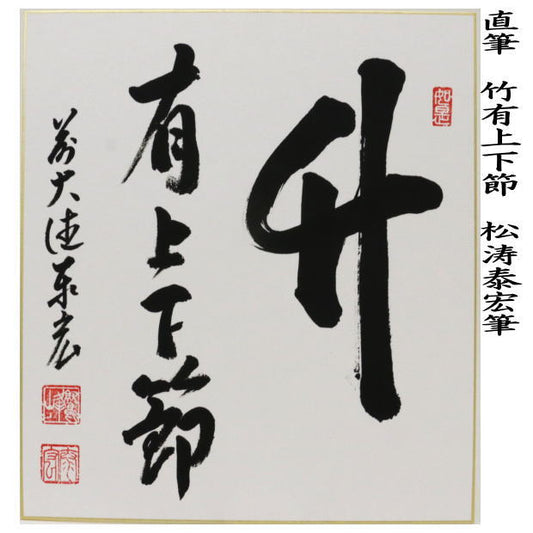 直筆 竹有上下節 松涛泰宏筆
如是
竹
有上下節
前大徳泰宏